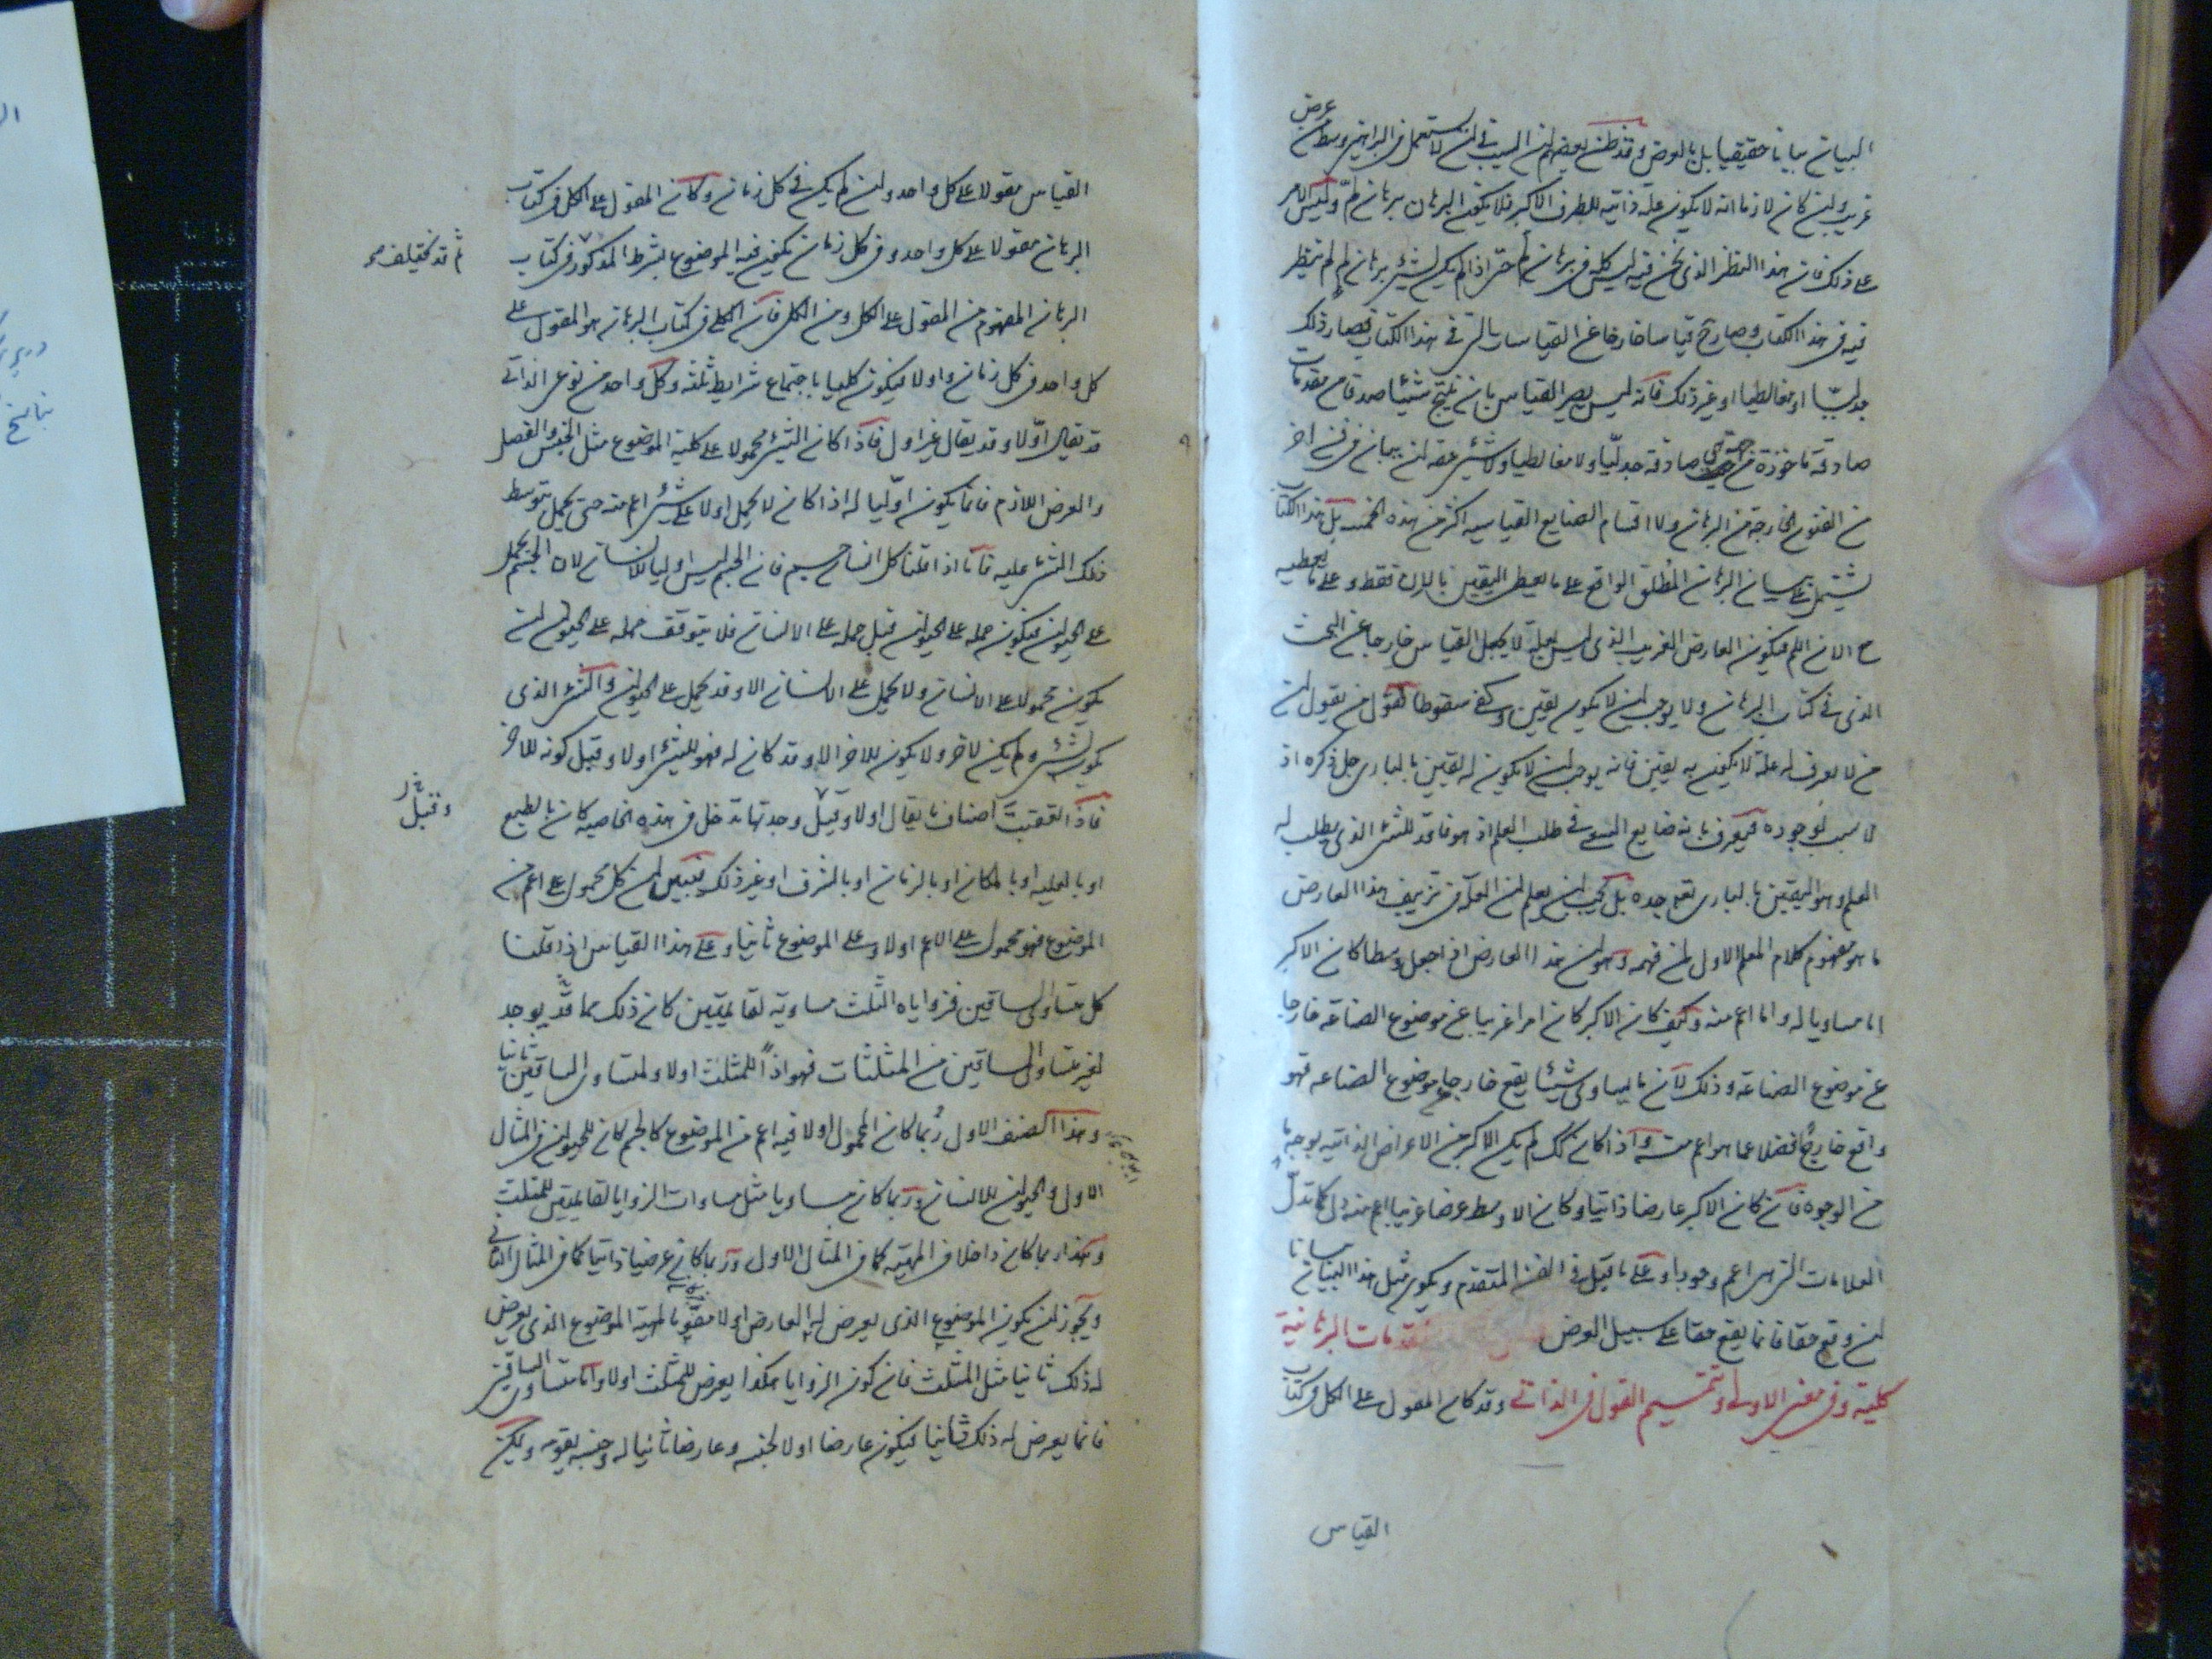 البيان بيانا حقيقيا بل بالعرض وقد ظن بعضهم ان السبب في ان لا يستعمل في البراهين وسط من عرض
غريب وان كان لازما انه لا يكون علة ذاتية للطرف الاكبر فلا يكون البرهان برهان لم وليس الامر
على ذلك فان هذا النظر الذي نحن فيه ليس كله في برهان لم حتى اذا لم يكن الشئ برهان لم لم ينظر
فيه في هذا الكتاب وصار ح قياسا خارجا عن القياسات التي في هذا الكتاب فصار ذلك
جدليا او مغالطيا او غير ذلك فانه ليس يصير القياس بان ينتج شيئا صدقا من مقدمات
صادقة ماخوذة من جهة هي صادقة جدليا ولا مغالطيا ولا شئ حقه ان يبان في فن اخر
من الفنون الخارجة من البرهان ولا اقسام الصنايع القياسيه اكثر من هذه الخمسه بل هذا الكتاب
يشتمل على بيان البرهان المطلق الواقع على ما يعطى اليقين بالان فقط وعلى ما يعطيه
مع الان اللم فيكون العارض الغريب الذي ليس بعلة لا يجعل القياس خارجا عن البحث
الذي في كتاب البرهان ولا يوجب ان لا يكون يقين وكفى سقوطا بقول من يقول ان
من لا يعرف له علة لا يكون به يقين فانه يوجب ان لا يكون له يقين بالبارى جل ذكره اذ
لا سبب لوجوده فيعرف بانه ضايع السعى في طلب العلم اذ هو فاقد للشئ الذي يطلب له
العلم وهو اليقين بالبارى تعالى جده بل يجب ان يعلم ان العلة في تزييف هذا العارض
ما هو مفهوم كلام المعلم الاول لمن فهمه وهو ان هذا العارض اذا جعل وسطا كان الاكبر
اما مساويا له واما اعم منه وكيف كان الاكبر كان امرا غريبا عن موضوع الصناعه خارجا
عن موضوع الصناعه وذلك لان ما يساوى شيئا يقع خارجا عن موضوع الصناعه فهو
واقع خارجا فضلا عما هو اعم منه واذا كان كك لم يكن الاكبر من الاعراض الذاتيه بوجه ما
من الوجوه فان كان الاكبر عارضا ذاتيا وكان الاوسط عرضا غريبا اعم منه دل كما تدل
العلامات التي هي اعم وجودا وعلى ما قيل في الفن المتقدم ويكون مثل هذا البيان بيانا
ان وقع حقا فانما يقع حقا على سبيل العرض مقدمات البرهانية
كلية وفي معنى الاولى وتتميم القول في الذاتي وقد كان المقول على الكل في كتاب
القياس
القياس مقولا على كل واحد وان لم يكن في كل زمان وكان المقول على الكل في كتاب
البرهان مقولا على كل واحد وفى كل زمان يكون فيه الموضوع بالشرط المذكور في كتاب
ثم قد تختلف
البرهان المفهوم من المقول على الكل ومن الكل فان الكلى في كتاب البرهان هو المقول على
كل واحد في كل زمان واولا فيكون كليا باجتماع شرايط ثلثه وكل واحد من نوعى الذاتى
قد يقال اولا وقد يقال غير اول فاذا كان الشئ محمولا على كلية الموضوع مثل الجنس والفصل
والعرض اللازم فانما يكون اوليا له اذا كان لا يحمل اولا على شئ اعم منه حتى يحمل بتوسط
ذلك الشئ عليه فانا اذا قلنا كل انسان جسم فان الجسم ليس اوليا للانسان لان الجسم يحمل
على الحيوان فيكون حمله على الحيوان قبل حمله على الانسان فلا يتوقف حمله على الحيوان ان
يكون محمولا على الانسان ولا يحمل على الانسان الا وقد يحمل على الحيوان والشئ الذى
يكون لشئ ولم يكن لاخر ولا يكون للاخر الا وقد كان له فهو للشئ اولا وقبل كونه للاخر
فاذا تعقبت اصناف ما يقال اولا وقبل وجدتها تدخل في هذه الخاصيه كان بالطبع
وقيل
او بالعليه او بالمكان او بالزمان او بالشرف او غير ذلك فتبين ان كل محمول على اعم من
الموضوع فهو محمول على الاعم اولا وعلى الموضوع ثانيا وعلى هذا القياس اذا قلنا
كل متساوى الساقين فزواياه الثلث مساوية لقايمتين كان ذلك مما قد يوجد
لغير متساوى الساقين من المثلثات فهو اذا للمثلث اولا ولمتساوى الساقين ثانيا
وهذا الصنف الاول ربما كان المحمول اولا فيه اعم من الموضوع كالجسم كان للحيوان في المثال
الاول والحيوان للانسان وربما كان مساويا مثل مساوات الزوايا لقايمتين للمثلث
وهذا ربما كان داخلا في المهيه كما في المثال الاول وربما كان عرضيا ذاتيا كما في المثال الثانى
ويجوز ان يكون الموضوع الذى يعرض له العارض اولا مقوما لمهية الموضوع الذى يعرض
له ذلك ثانيا مثل المثلث فان كون الزوايا هكذا يعرض للمثلث اولا واما متساوى الساقين
فانما يعرض له ذلك ثانيا فيكون عارضا اولا لجنسه وعارضا ثانيا له وجنسه يقومه ويمكن